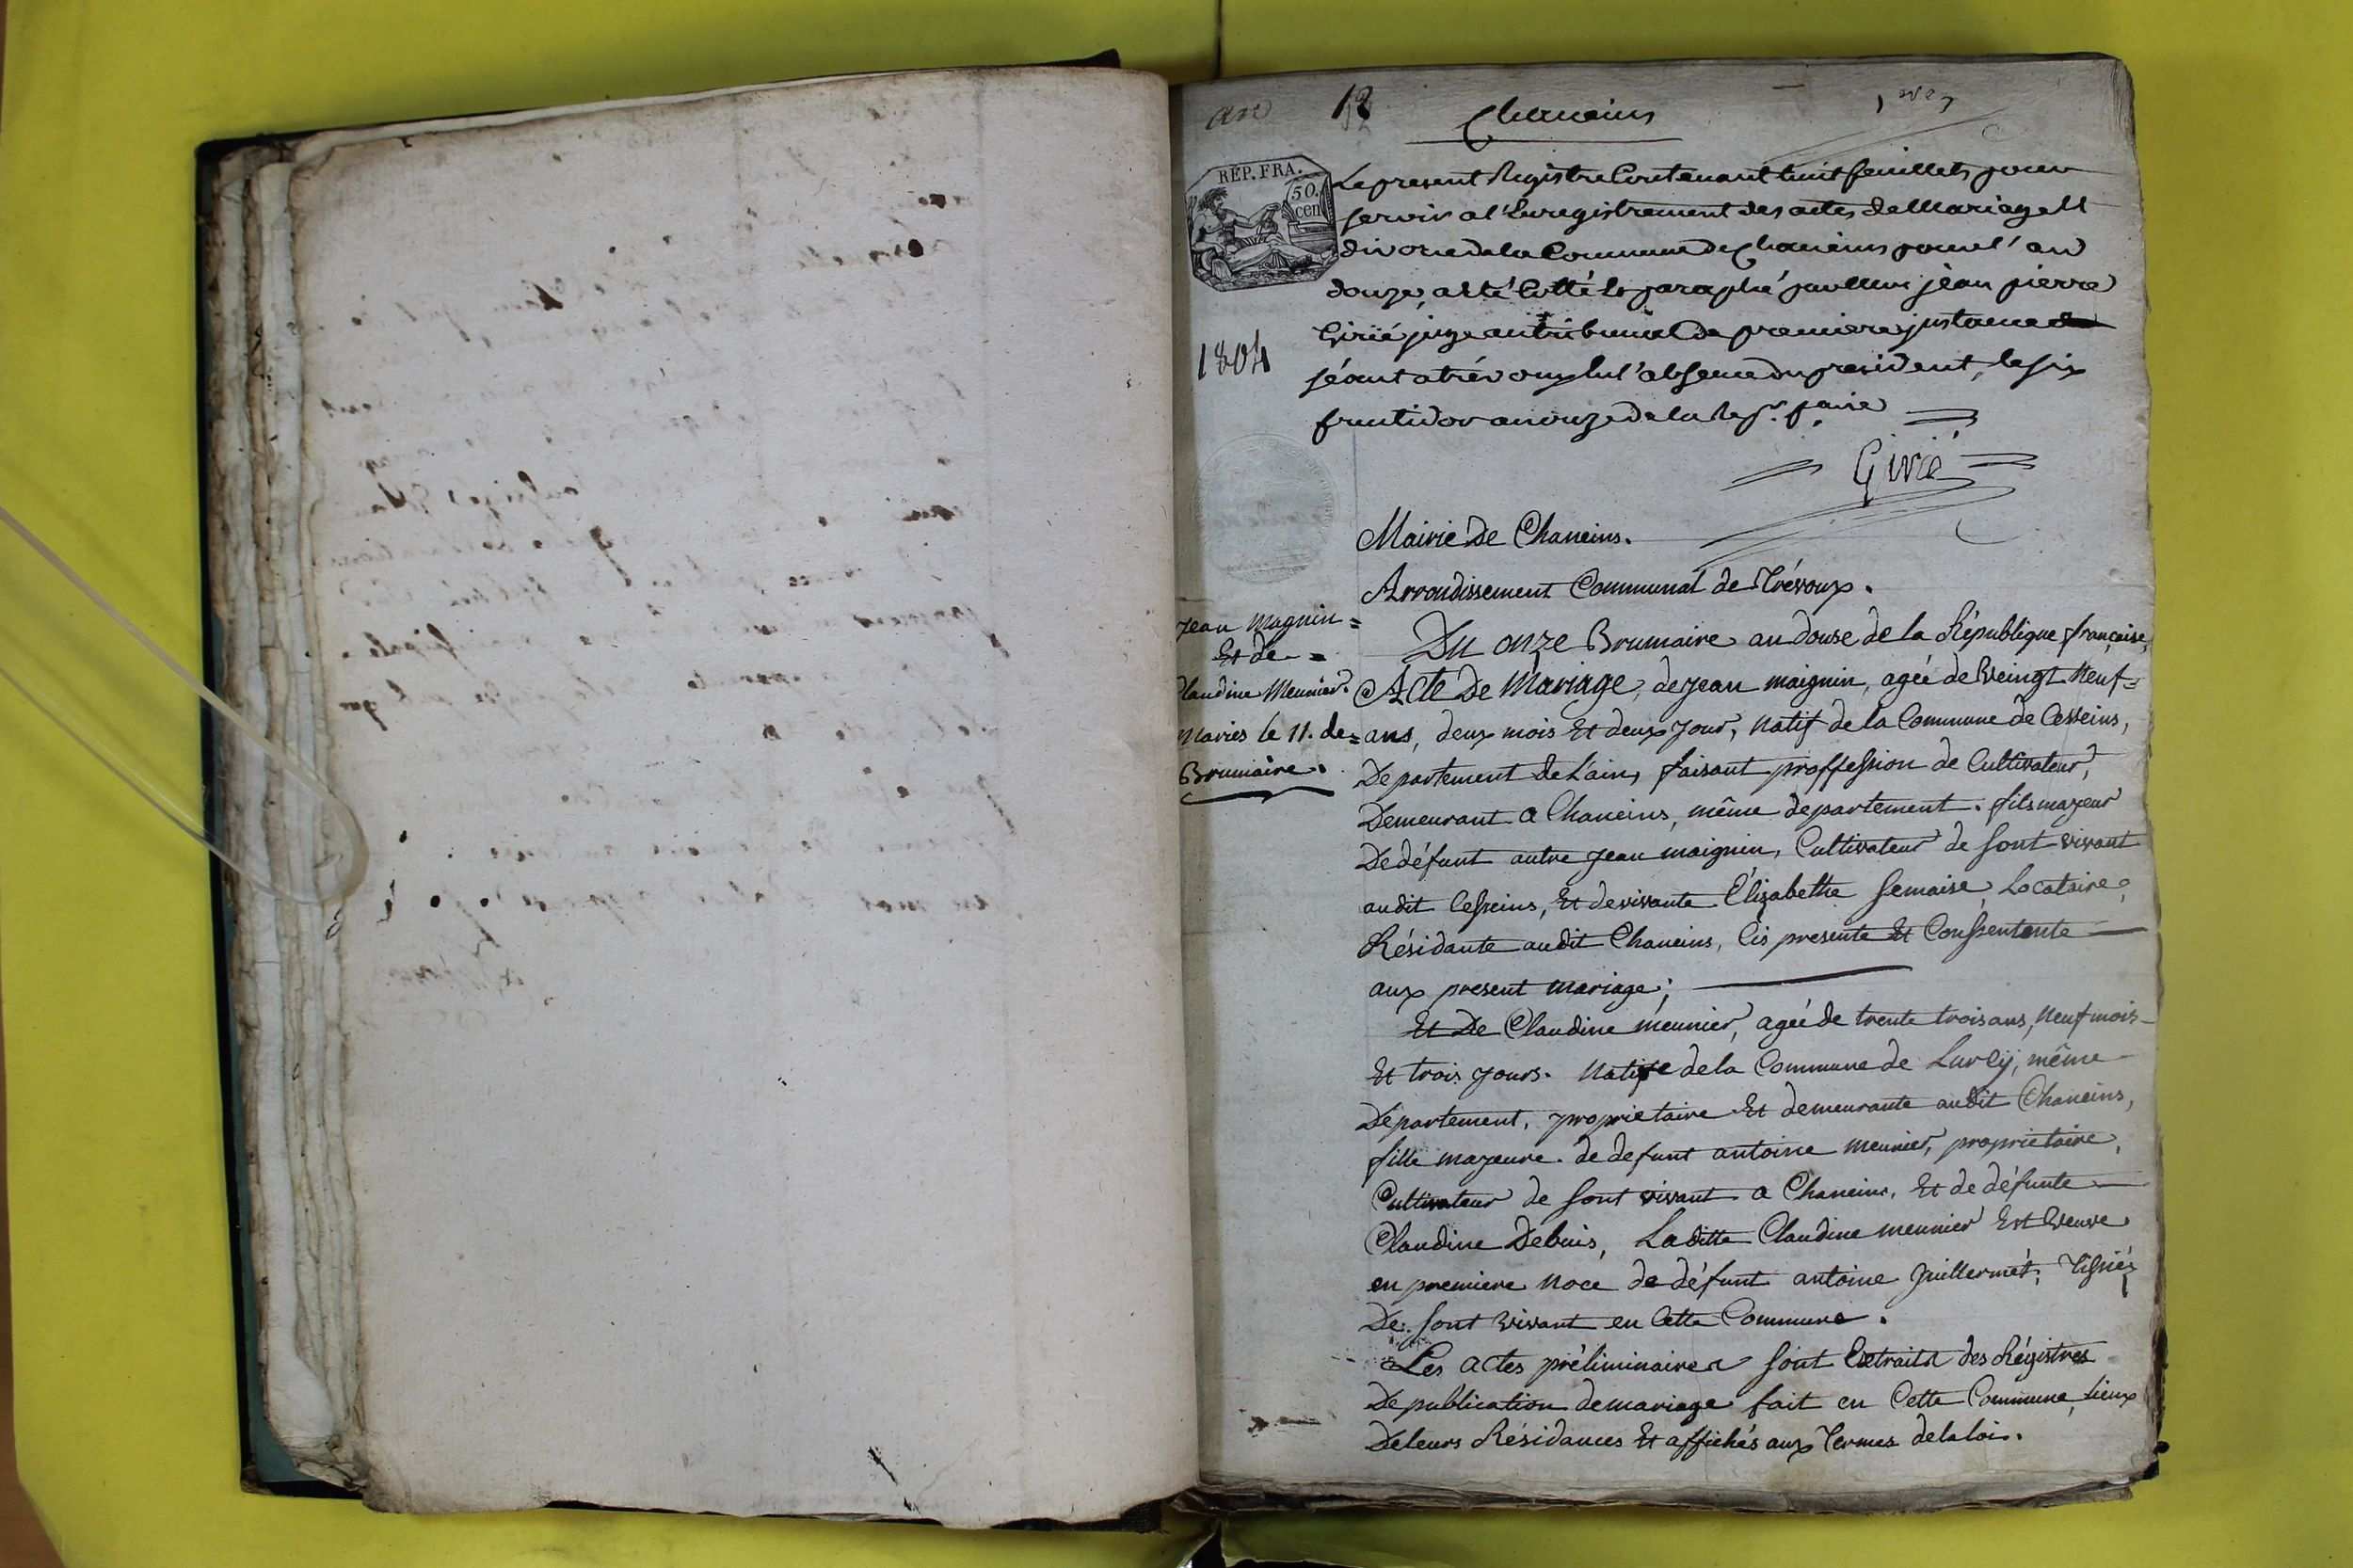 an 12 Chaneins 1er
REP. FRA.
50.
cen
Le present Registre Contenant huit feuillets pour
servir a l'Enregistrement des actes de Mariage Et
divorce de la Commune de Chaneins pour l'an
douze, a été Cotté Et paraphé par Nous jean pierre
Girié juge au tribunal de premiere justance
séant a trévoux vu l'absence du president, le six
fructidor an onze de la Rep. f.aise
1804
Girié
Mairie De Chaneins.
Arrondissement Communal de Trévoux.
Jean Magnin =
Et de =
Claudine Meunier.
Mariés le 11. de =
Brumaire.
Du onze Brumaire an douse de la République française,
Acte De Mariage, de jean maignin, ageé de Veingt Neuf =
ans, deux mois Et deux jour, Natif de la Commune de Cesseins,
Departement de L'ain, faisant proffession de Cultivateur,
Demeurant a Chaneins, même departement. fils majeur
De défunt autre jean maignin, Cultivateur de Sont vivant
audit Cesseins, Et de vivante Élizabethe Semaise, Locataire,
Résidante audit Chaneins, Cis presente Et Conssentente
aux present mariage;
Et De Claudine meunier, ageé de trente trois ans, Neuf mois
Et trois jours. Native de la Commune de Lurcÿ, même
Département, proprietaire Et demeurante audit Chaneins,
fille majeure. de defunt antoine meunier, proprietaire,
Cultivateur de Sont vivant a Chaneins, Et de défunte
Claudine Debuis, Laditte Claudine meunier Est Veuve
en premiere Noce de défunt antoine Guillermét; Tissiés
De Sont Vivant en Cette Commune.
Les actes préliminaires Sont Extraits des Régistres
De publication de mariage fait en Cette Commune, Lieux
De leurs Résidances Et affichés aux Termes de la loi.